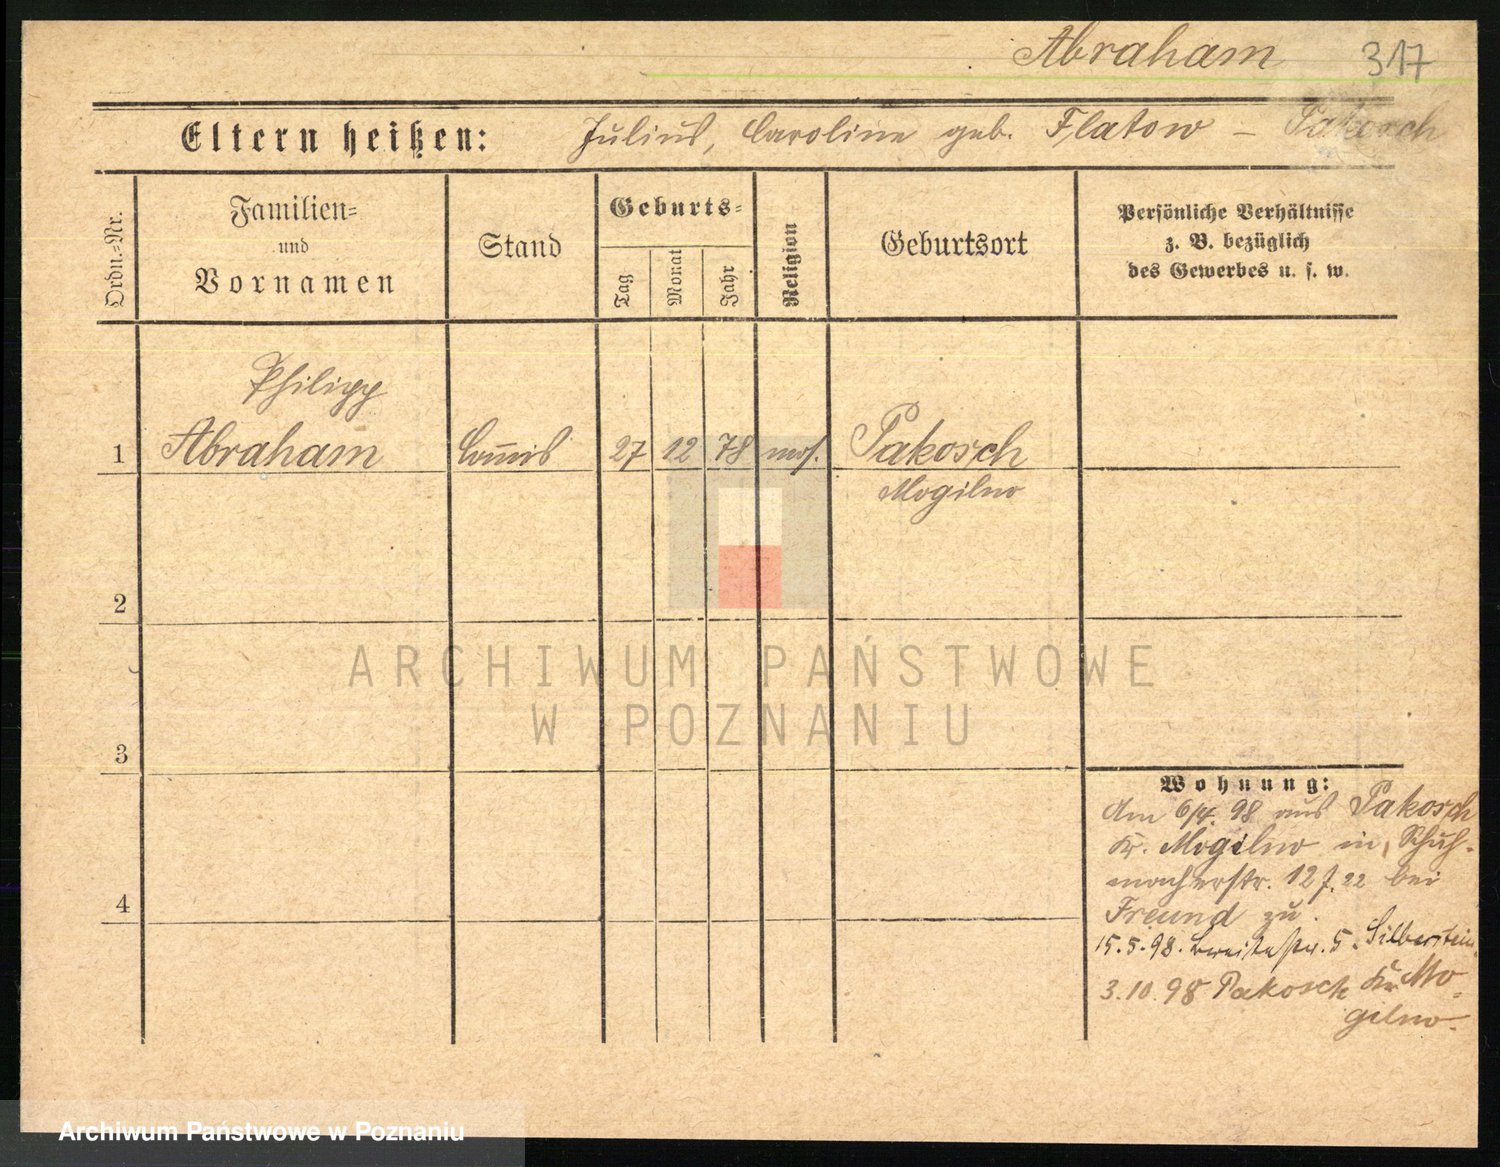 Abraham 317
Eltern heißen: Julius, Caroline geb. Flatow – Pakosch
Ordn.=Nr.
Familien=
und
Vornamen
Stand
Geburts=
Tag
Monat
Jahr
Religion
Geburtsort
Persönliche Verhältnisse
z. B. bezüglich
des Gewerbes u. s. w.
Philipp
1 Abraham Com̅is 27 12 78 mos. Pakosch
Mogilno
2
3
4
Wohnung:
Am 6/4. 98 aus Pakosch
Kr. Mogilno in, Schuh-
macherstr. 12 J. 22 bei
Freund zu.
15.5.98. Breitestr. 5. Silberstein
3.10.98 Pakosch Kr Mo-
gilno.
ARCHIWUM PAŃSTWOWE
W POZNANIU
Archiwum Państwowe w Poznaniu